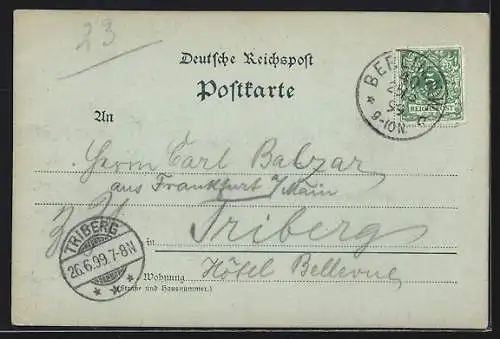 23
Deutsche Reichspost
Postkarte
An
Herrn Carl Balzar
aus Frankfurt a/Main
z. Z.
in Triberg
Wohnung Hôtel Bellevue
(Straße und Hausnummer.)
TRIBERG
26.6.99.7-8N
BERLIN
9-10N
5
REICHSPOST